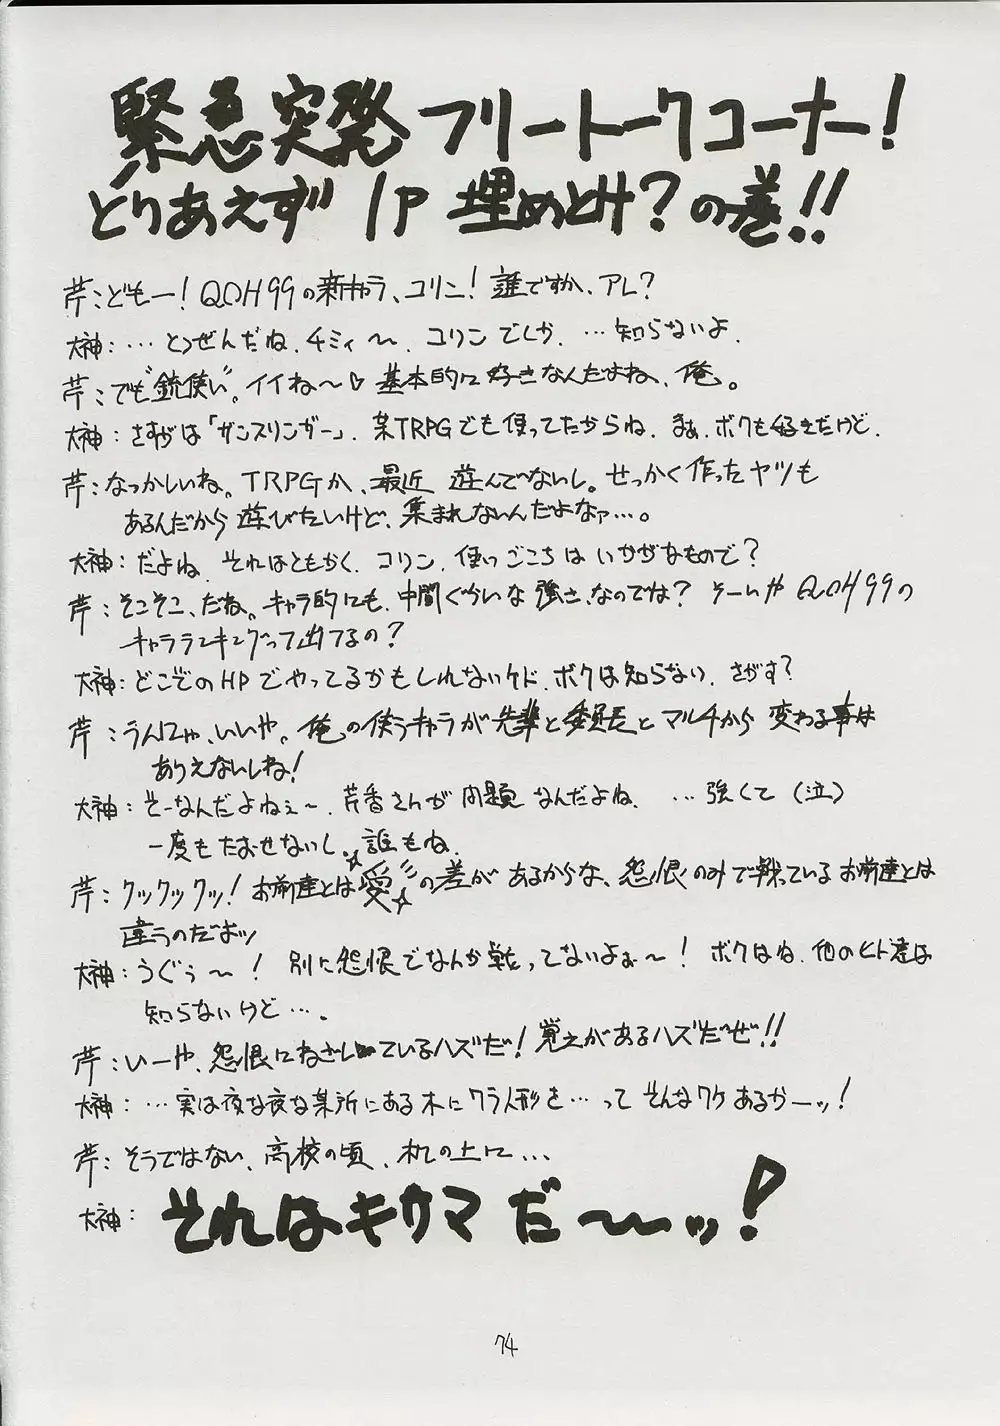 緊急突発フリートークコーナー!
とりあえず 1P 埋めとけ?の巻!!
芹:どもー! QOH99の新キャラ、コリン! 誰ですか、アレ?
大神:…とつぜんだね、チミィ〜、コリンでしか、…知らないよ、
芹:でも"銃使い"。イイね〜♡ 基本的に好きなんだよね、俺。
大神:さすがは「ガンスリンガー」、某TRPGでも使ってたからね、まぁ、ボクも好きだけど、
芹:なつかしいね。TRPGか、最近 遊んでないし。せっかく作ったヤツも
あるんだから遊びたいけど、集まれないんだよなァ…。
大神:だよね、それはともかく、コリン、使いごこちはいかがなもので?
芹:そこそこ、だね。キャラ的にも、中間ぐらいな強さ、なのでは? そーいや QOH99の
キャラランキングって出てるの?
大神:どこぞのHPでやってるかもしれないケド、ボクは知らない、さがす?
芹:うんにゃ、いいや。俺の使うキャラが先輩と委員長とマルチから変わる事は
ありえないしね!
大神:そーなんだよねぇ〜、芹香さんが問題なんだよね、…強くて(泣)
一度もたおせないし、誰もね、
芹:クックックッ! お前達とは愛の差があるからな、怨恨のみで戦っているお前達とは
違うのだよッ
大神:うぐぅ〜! 別に怨恨でなんか戦ってないよぉ〜! ボクはね、他のヒト達は
知らないけど…。
芹:いーや、怨恨にねざしているハズだ! 覚えがあるハズだぜ!!
大神:…実は夜な夜な某所にある木にワラ人形を…って そんなワケあるかーッ!
芹:そうではない、高校の頃、机の上に…
大神:それはキサマだ〜〜ッ!
74